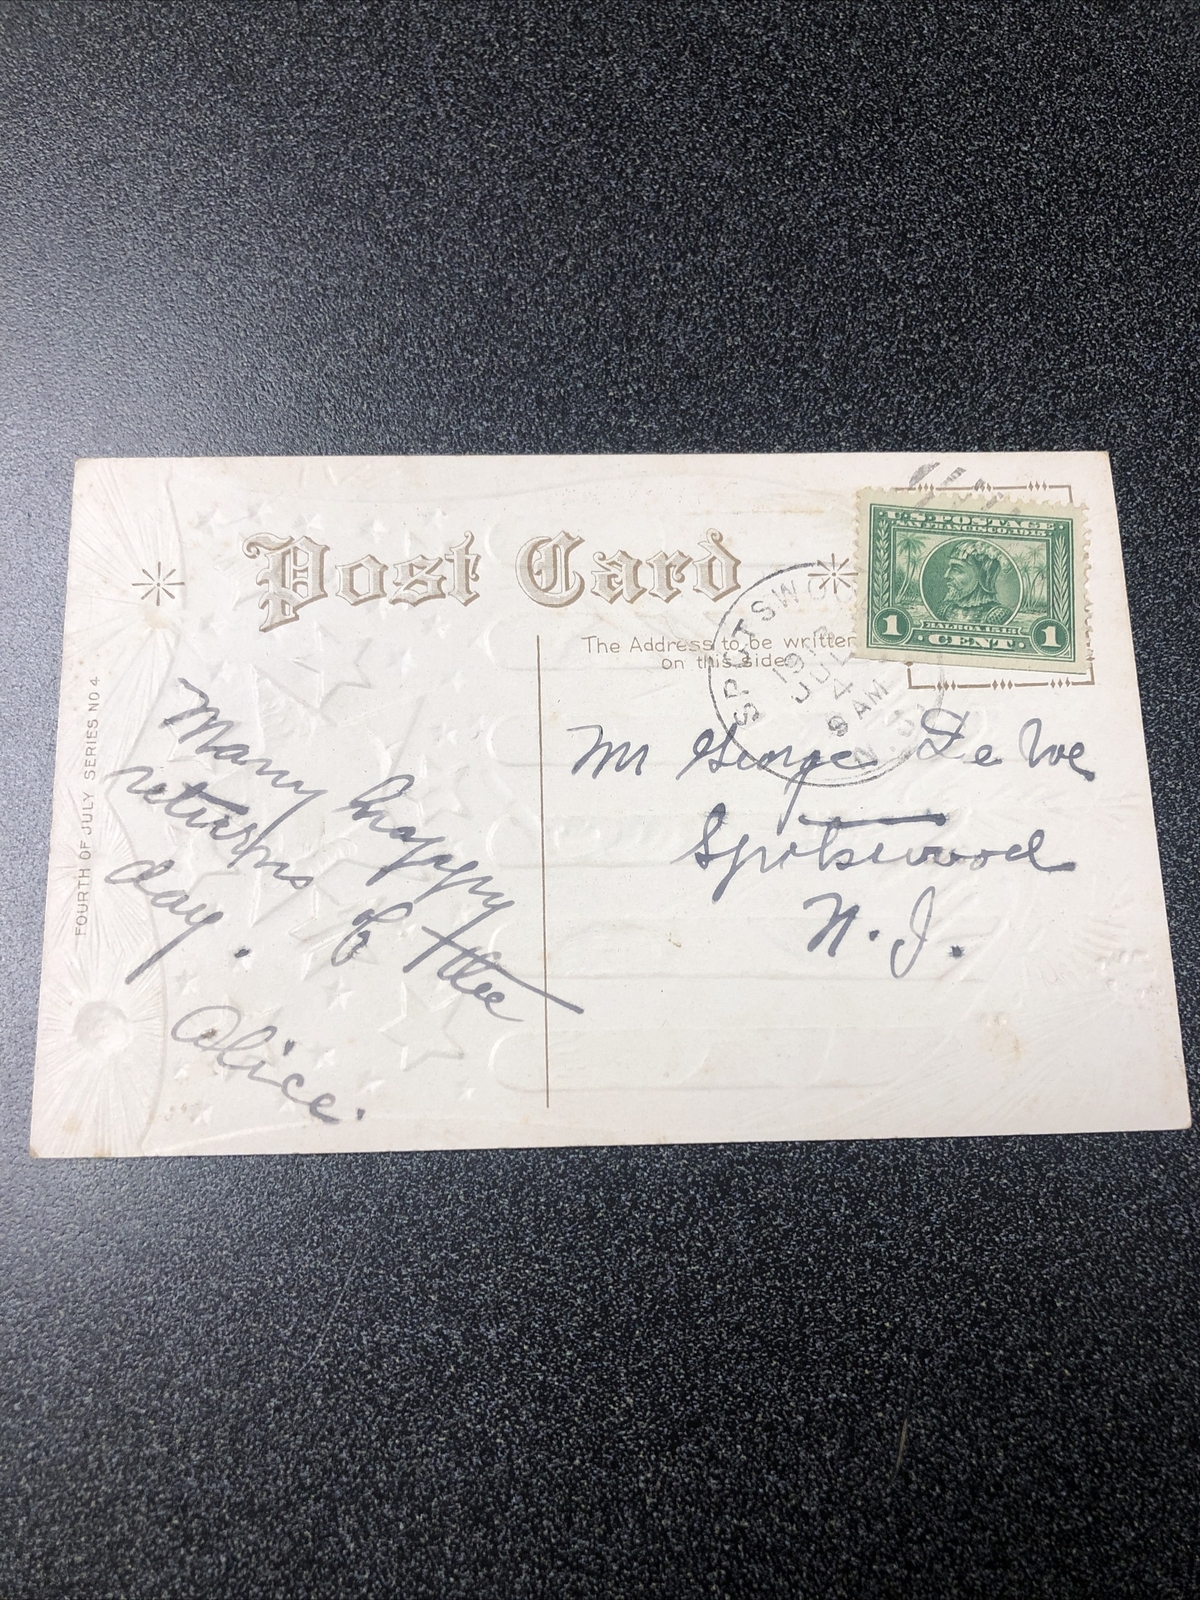 Post Card
The Address to be written
on this side
U.S. POSTAGE
SAN FRANCISCO, 1915
BALBOA 1513
1 CENT 1
SPOTSWOO
JUL
4
9 AM
N.J.
FOURTH OF JULY SERIES NO 4
Many happy
returns of the
day.
Alice.
Mr George De Voe
Spotswood
N. J.